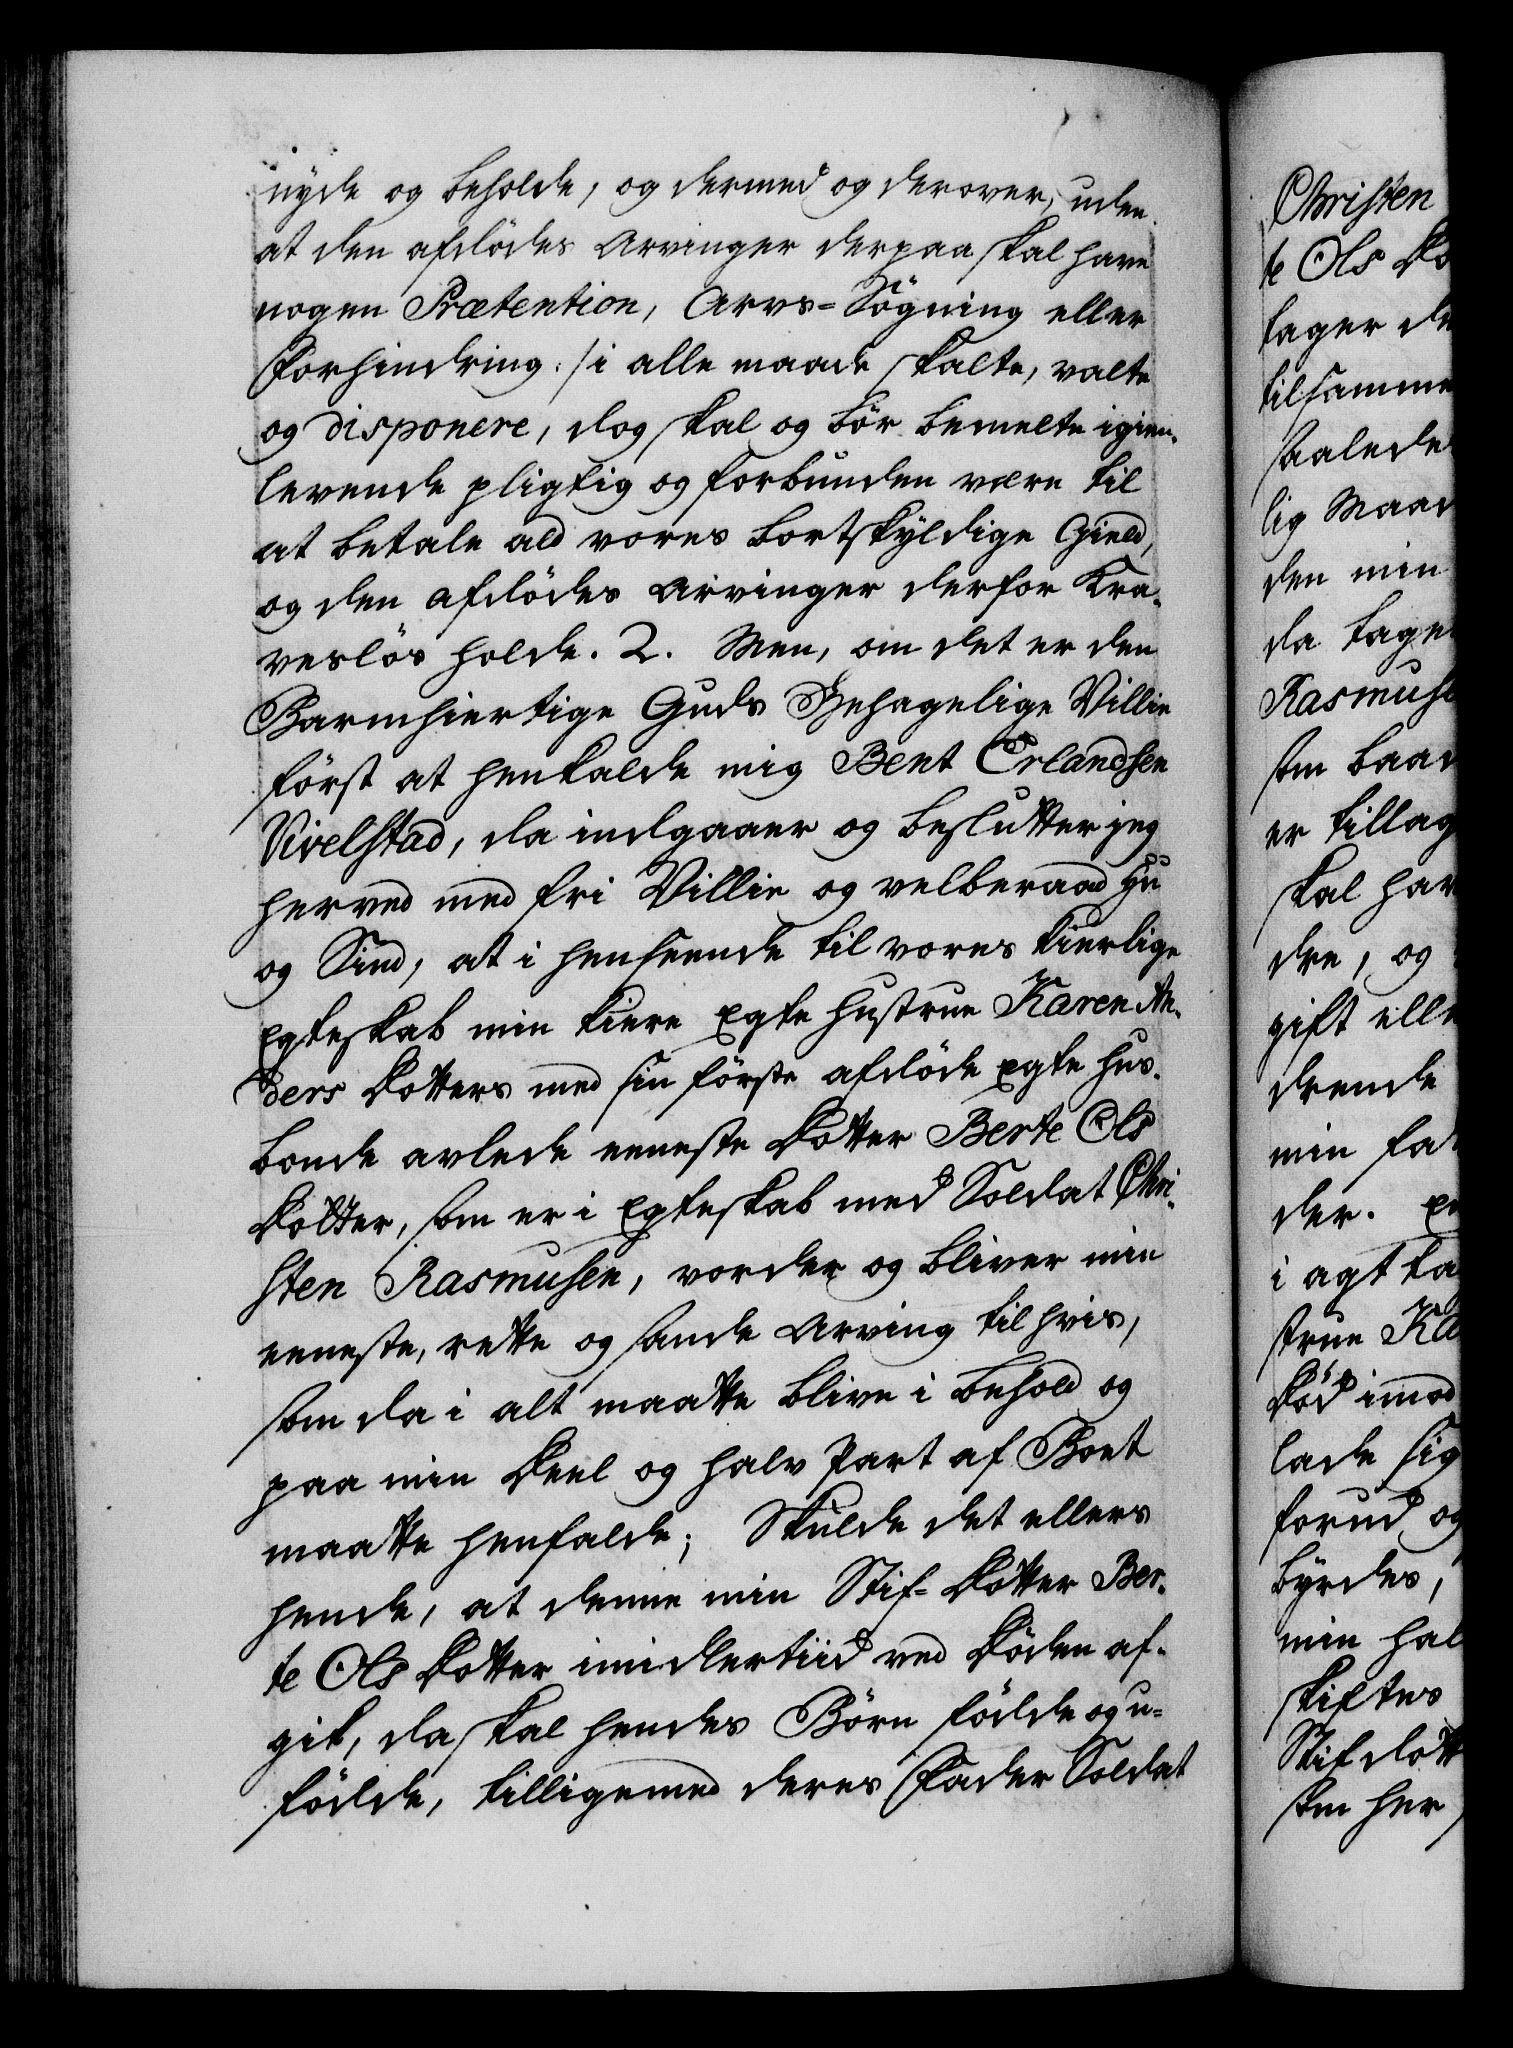 nyde og beholde, og dermed og derover, uden
at den afdödes Arvinger derpaa skal have
nogen Prætention, Arvs-Sögning eller
Forhindring :/ i alle maade skalte, valte
og disponere, dog skal og bör bemelte igien-
levende pligtig og forbunden være til
at betale ald vores bortskyldige Gield,
og den afdödes Arvinger derfor Kra-
veslös holde. 2. Men, om det er den
Barmhiertige Guds Behagelige Villie
först at henkalde mig Bent Erlandsen
Virelstad, da indgaaer og beslutter jeg
herved med fri Villie og velberaad Hu
og Sind, at i henseende til vores kierlige
Egteskab min kiere Egte Hustrue Karen An-
ders Dotters med sin förste afdöde Egte Hus-
bonde avlede eeneste Dotter Berte Ols
Dotter, som er i Egteskab med Soldat Chri-
sten Rasmusen, vorder og bliver min
eeneste, rette og sande Arving til hvis,
som da i alt maatte blive i behold og
paa min Deel og halv Part af Boet
maatte henfalde; Skulde det ellers
hende, at denne min Stif-Dotter Ber-
te Ols Dotter imidlertiid ved Döden af-
gik, da skal hendes Börn födde og u-
födde, tilligemed deres Fader Soldat
Christen
te Ols Do
tager de
tilsamme
saalede
lig Maad
den min
da tage
Rasmuse
som baad
er tillag
skal hav
dre, og
gift elle
drende
min fa
der. E
i agt ta
strue Ka
Död imod
lade sig
forud og
byrdes,
min hal
skiftes
Stifdott
som her